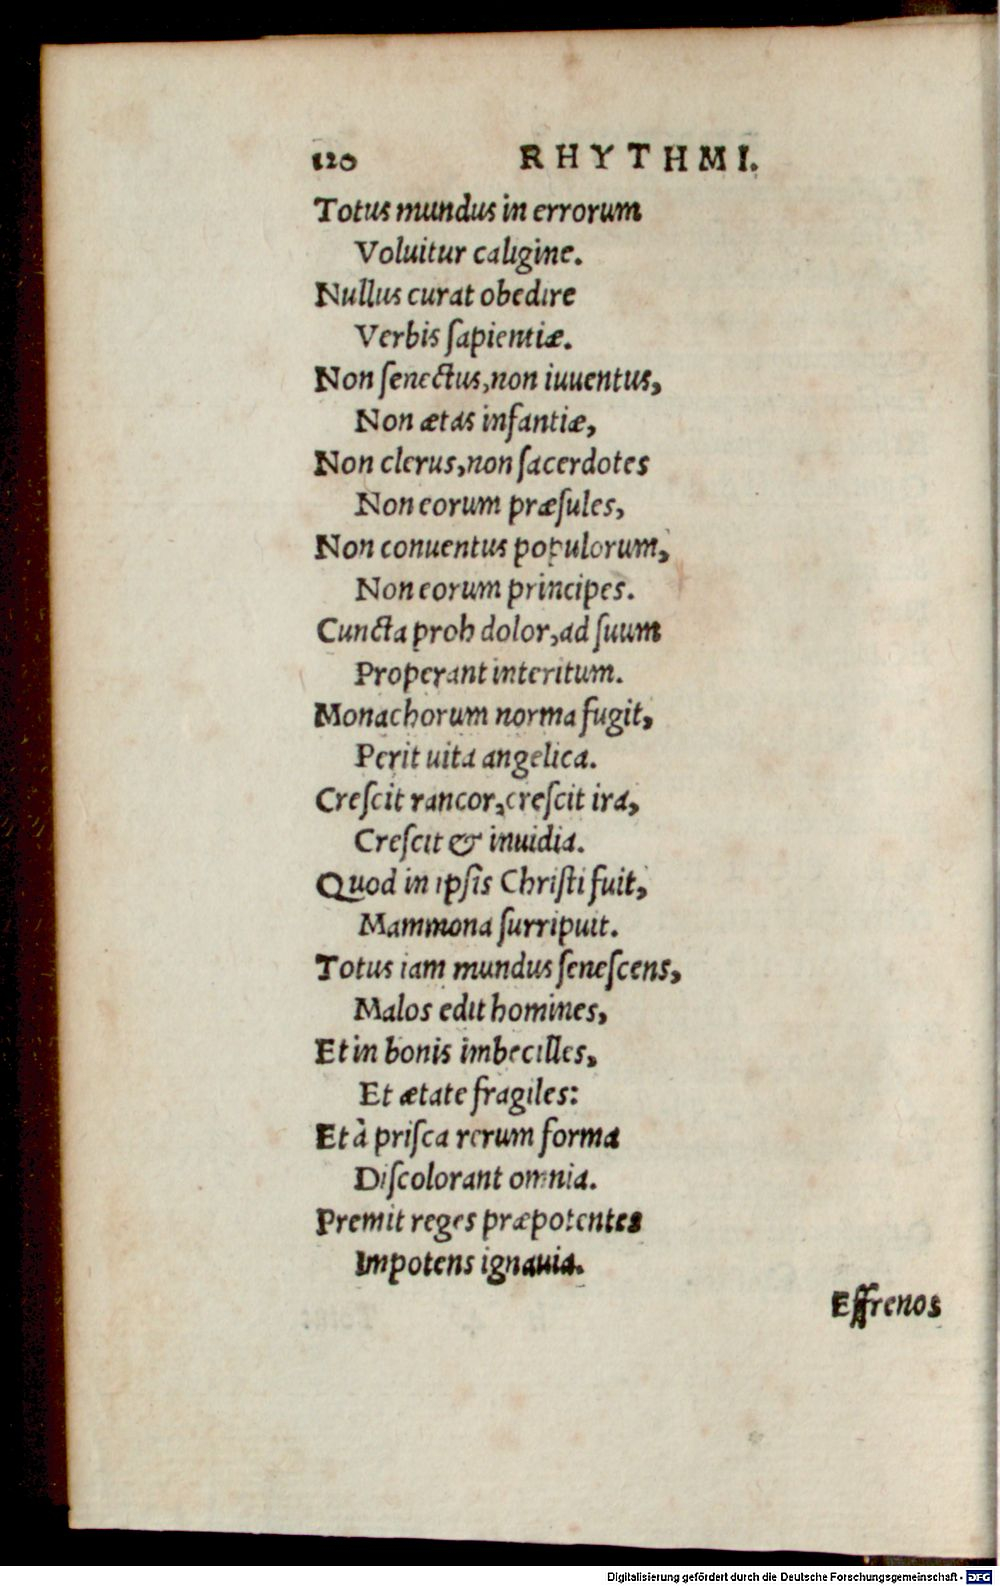 120 RHYTHMI.
Totus mundus in errorum
Voluitur caligine.
Nullus curat obedire
Verbis ſapientiæ.
Non ſenectus,non iuuentus,
Non ætas infantiæ,
Non clerus,non ſacerdotes
Non eorum præſules,
Non conuentus populorum,
Non eorum principes.
Cuncta proh dolor,ad ſuum
Properant interitum.
Monachorum norma fugit,
Perit uita angelica.
Creſcit rancor,creſcit ira,
Creſcit & inuidia.
Quod in ipſis Chriſti fuit,
Mammona ſurripuit.
Totus iam mundus ſeneſcens,
Malos edit homines,
Et in bonis imbecilles,
Et ætate fragiles:
Et à priſca rerum forma
Diſcolorant omnia.
Premit reges præpotentes
Impotens ignauia.
Effrenos
Digitalisierung gefördert durch die Deutsche Forschungsgemeinschaft - DFG